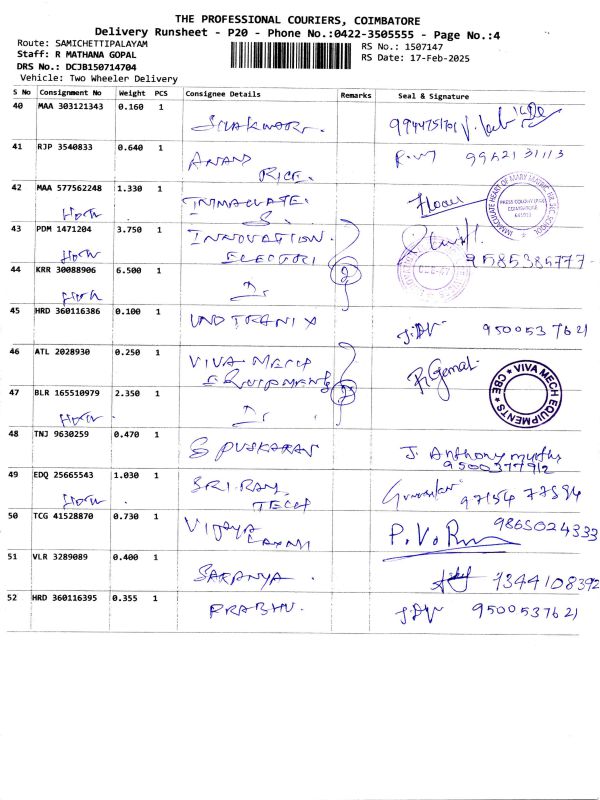 THE PROFESSIONAL COURIERS, COIMBATORE
Delivery Runsheet - P20 - Phone No.:0422-3505555 - Page No.:4
Route: SAMICHETTIPALAYAM
RS No.: 1507147
Staff: R MATHANA GOPAL
RS Date: 17-Feb-2025
DRS No.: DCJB150714704
Vehicle: Two Wheeler Delivery
S No Consignment No Weight PCS Consignee Details Remarks Seal & Signature
40 MAA 303121343 0.160 1
9944751701
41 RJP 3540833 0.640 1
ANAND
RICE.
42 MAA 577562248 1.330 1
IMMACULATE.
S.
IMMACULATE HEART OF MARY MATRIC HR. SEC SCHOOL
PRESS COLONY POST
COIMBATORE
641019
43 PDM 1471204 3.750 1
INNOVATION.
ELECTRI
9585385777
44 KRR 30088906 6.500 1
2
Do
45 HRD 360116386 0.100 1
9500537621
46 ATL 2028930 0.250 1
VIVA MECH
EQUIPMENTS
R. Gomat
VIVA MECH EQUIPMENTS CBE
47 BLR 165510979 2.350 1
2
Do
48 TNJ 9630259 0.470 1
S PUSKARAN
J. Anthony
9500377912
49 EDQ 25665543 1.030 1
SRI RAM
TECH
97154 77594
50 TCG 41528870 0.730 1
VIJAYA
LAXMI
9865024333
51 VLR 3289089 0.400 1
SARANYA
7344108392
52 HRD 360116395 0.355 1
PRABHU.
9500537621